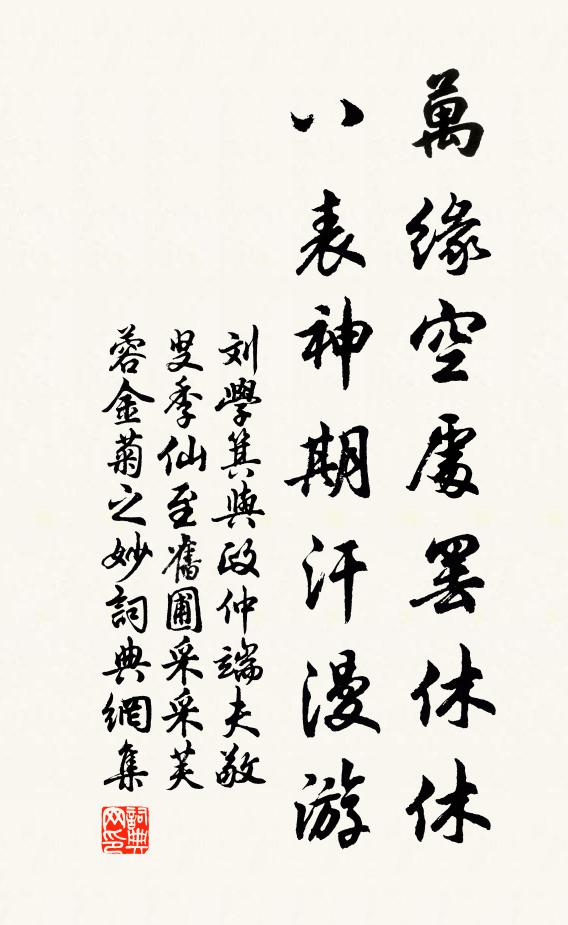 萬緣空處罢休休
八表神期汗漫游
刘學箕與政仲端夫敬
叟季仙至舊圃采采芙
蓉金菊之妙詞典網集
詞典网印